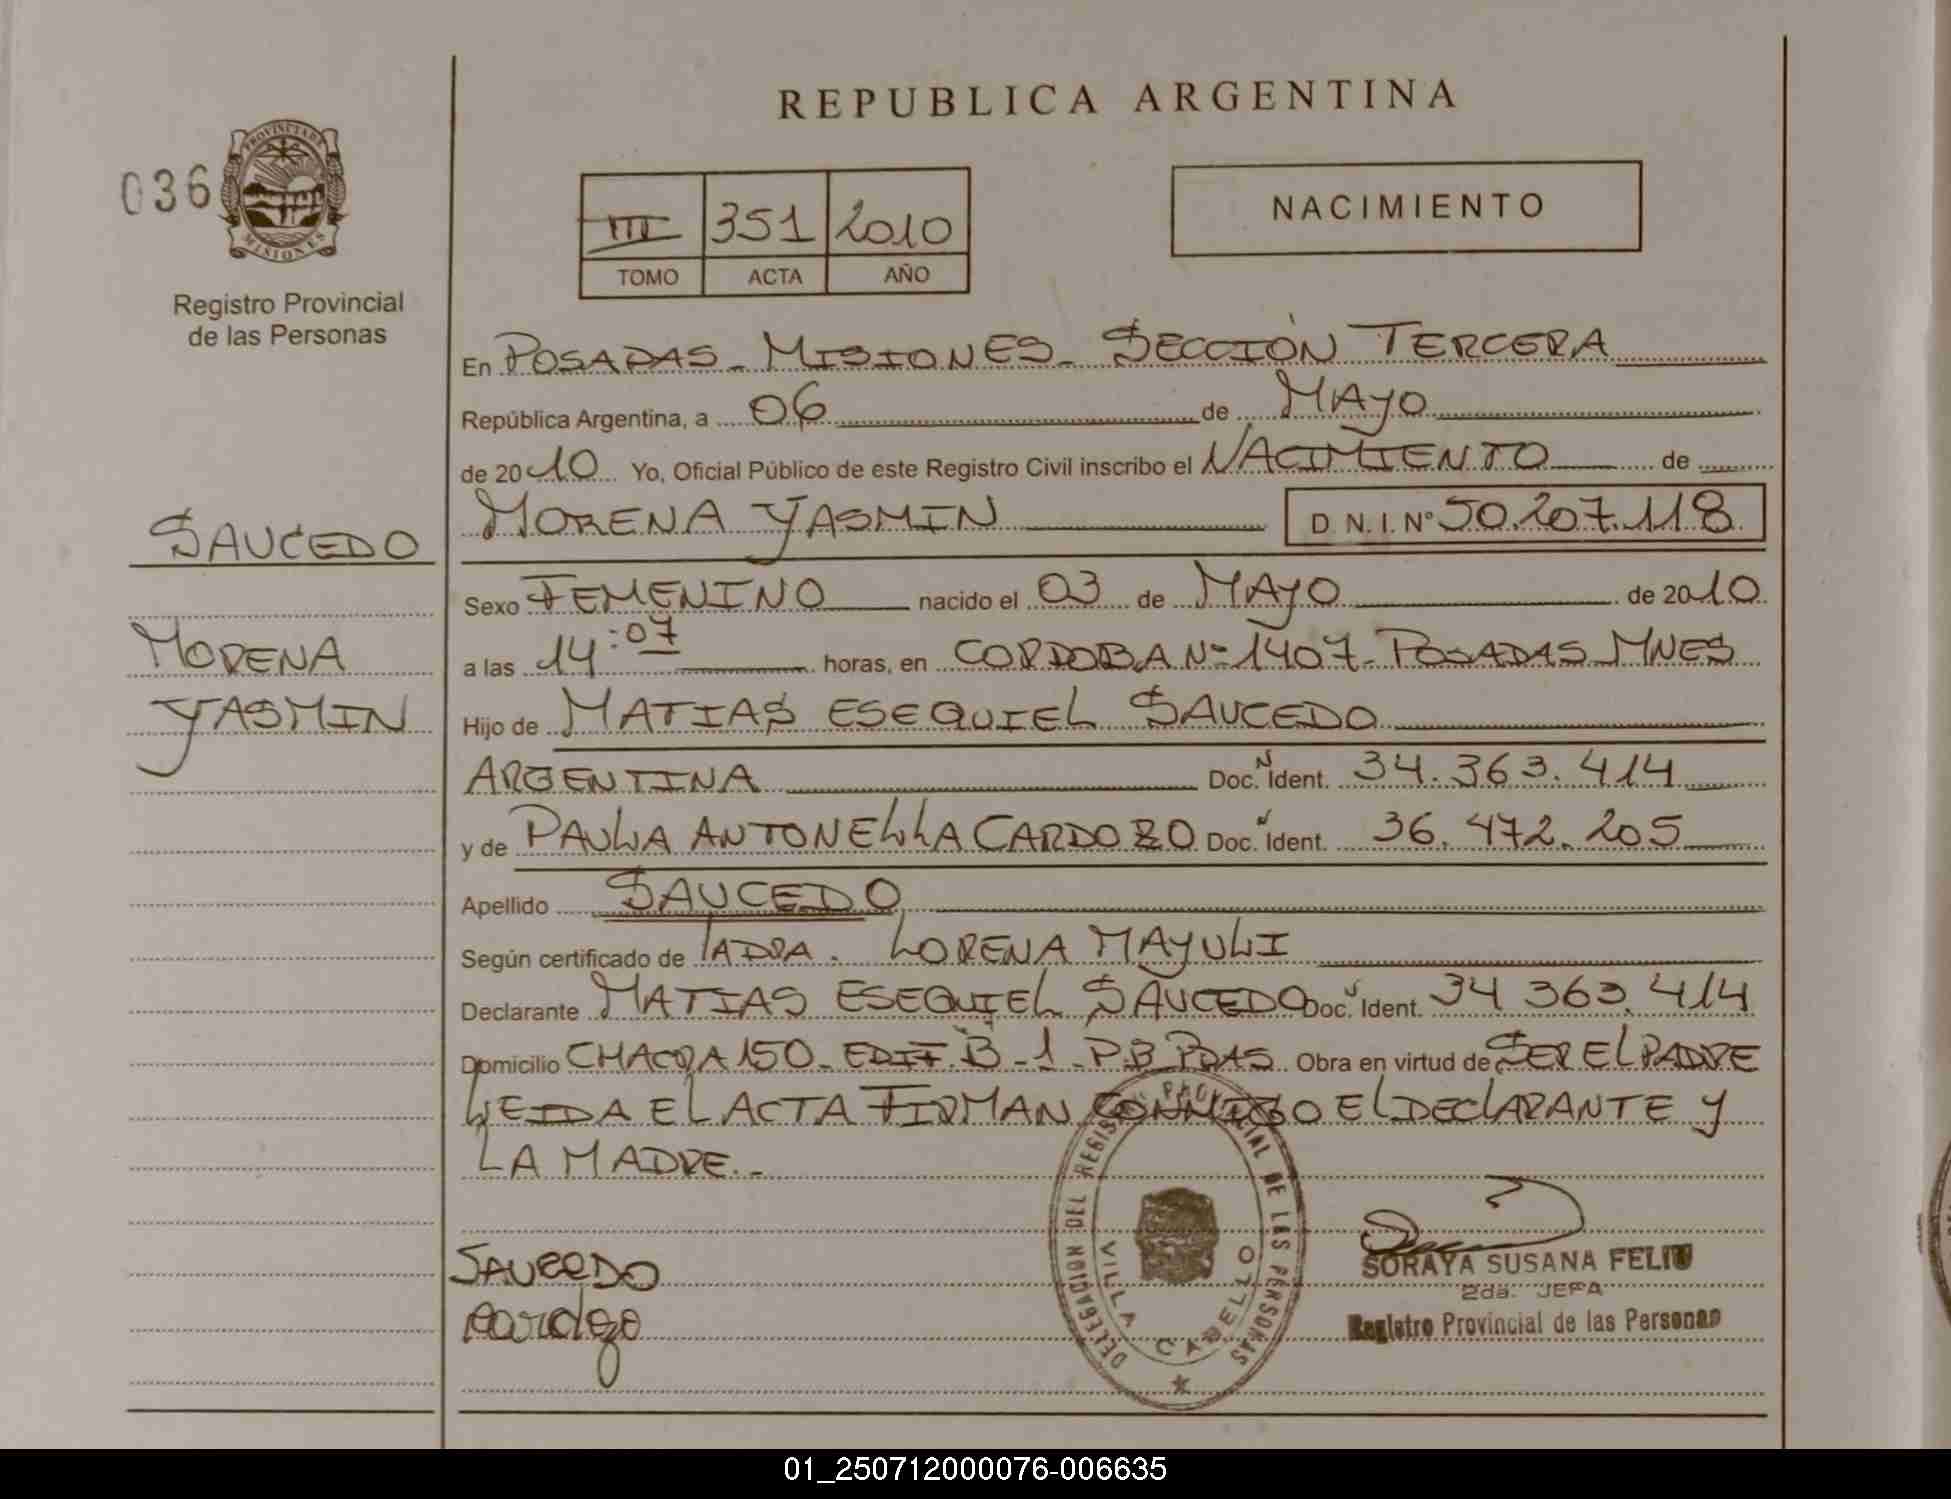 REPUBLICA ARGENTINA
036
PROVINCIA DE
MISIONES
Registro Provincial
de las Personas
III 351 2010
TOMO ACTA AÑO
NACIMIENTO
En POSADAS - MISIONES - SECCIÓN TERCERA
República Argentina, a 06 de MAYO
de 2010 Yo, Oficial Público de este Registro Civil inscribo el NACIMIENTO de
MORENA YASMIN D.N.I. Nº 50.207.118
SAUCEDO
MORENA
YASMIN
Sexo FEMENINO nacido el 03 de MAYO de 2010
a las 14:07 horas, en CORDOBA Nº 1407 - POSADAS MNES
Hijo de MATIAS ESEQUIEL SAUCEDO
ARGENTINA Doc. N Ident. 34.363.414
y de PAULA ANTONELLA CARDOZO Doc. N Ident. 36.472.205
Apellido SAUCEDO
Según certificado de LORENA MAYULI
Declarante MATIAS ESEQUIEL SAUCEDO Doc. N Ident. 34 363.414
Domicilio CHACRA 150 - EDIF. B - 1 - P.B PDAS. Obra en virtud de SER EL PADRE
LEIDA EL ACTA FIRMAN CONMIGO EL DECLARANTE Y
LA MADRE.-
SAUCEDO
Cardozo
DELEGACION DEL REGISTRO PROVINCIAL DE LAS PERSONAS
VILLA CABELLO
SORAYA SUSANA FELIU
2da. JEFA
Registro Provincial de las Personas
01_250712000076-006635